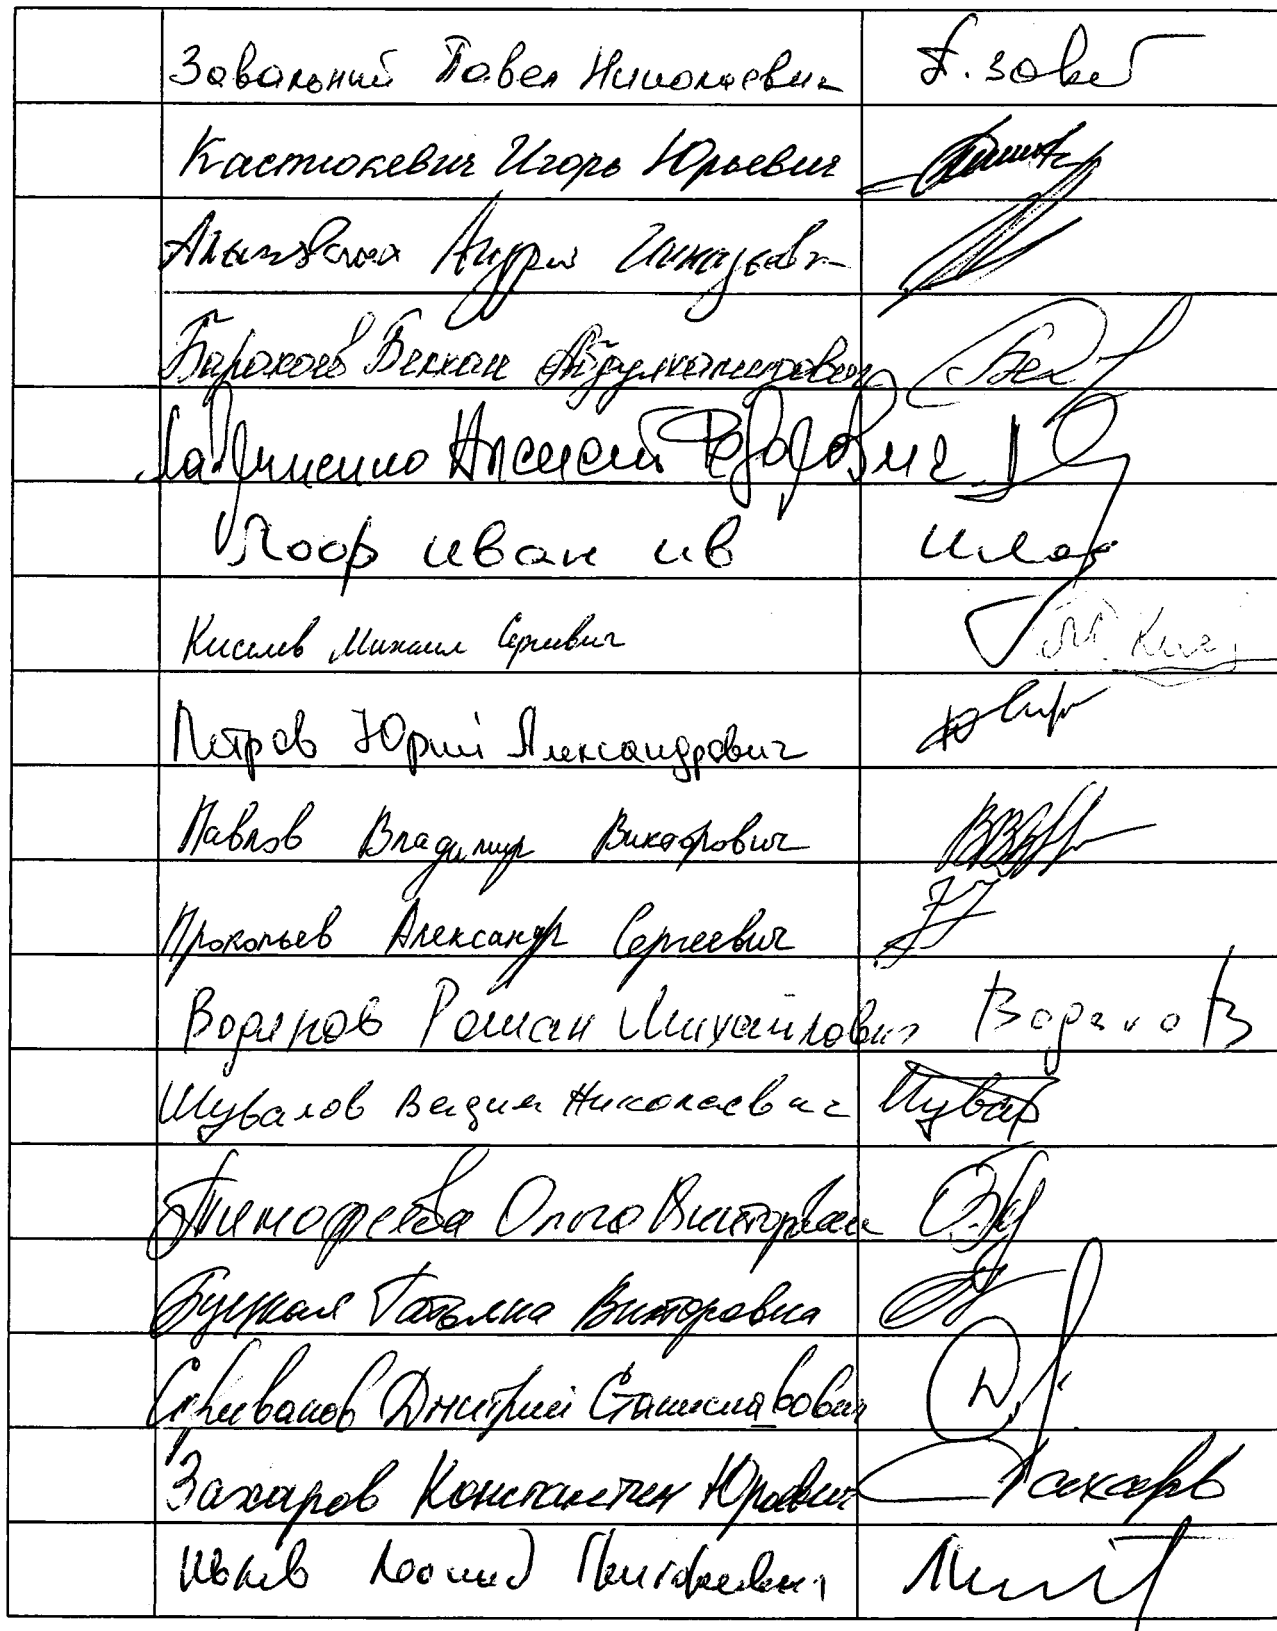 Завальний Павел Николаевич П. Завал
Кастюкевич Игорь Юрьевич
Андрей Геннадьевич
Барахоев Бекхан Абдулхамидович Бек
Лавриненко Алексей Федорович
Лоор Иван Ив Илор
Киселев Михаил Сергеевич М. Кис
Петров Юрий Александрович
Павлов Владимир Викторович
Прокопьев Александр Сергеевич
Водянов Роман Михайлович Водянов
Шувалов Вадим Николаевич Шувал
Тимофеева Ольга Викторовна
Буцкая Татьяна Викторовна
Скриванов Дмитрий Станиславович
Захаров Константин Юрьевич Захаров
Ивлев Леонид Григорьевич